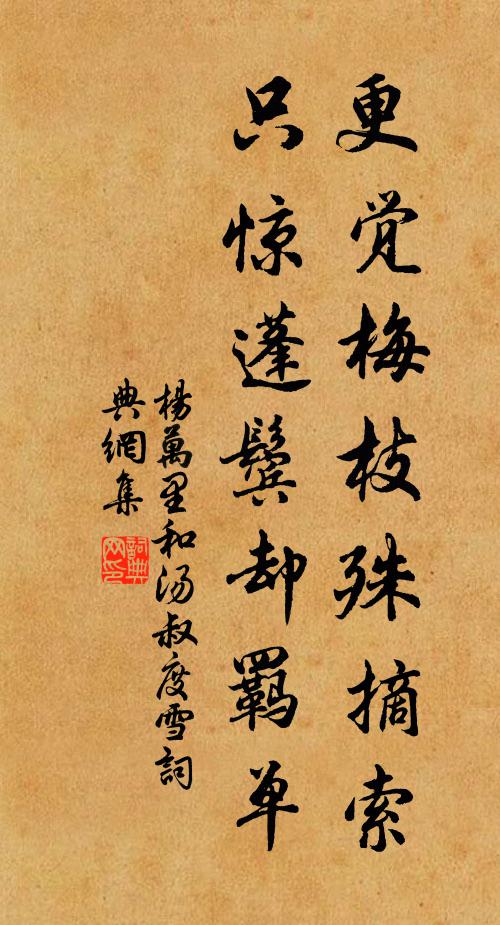 更觉梅枝殊摘索
只惊蓬鬓却羁单
杨万里和汤叔度雪词
典网集
词典网印